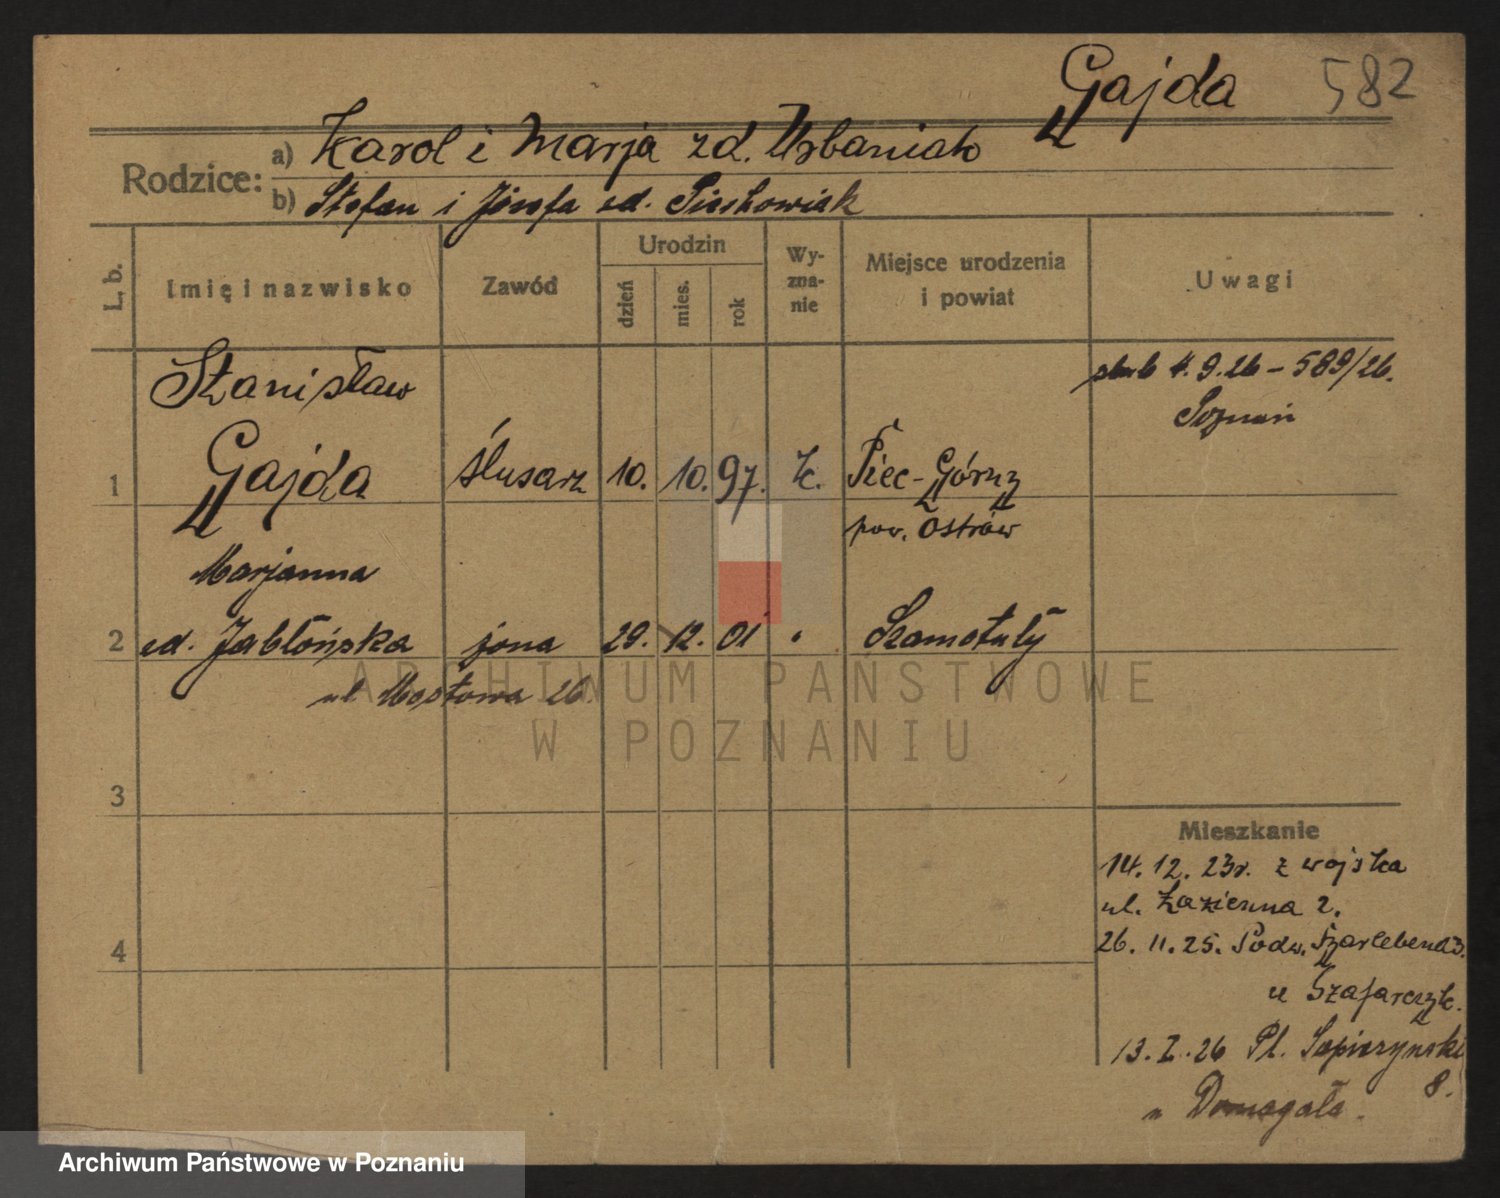 Gajda 582
Rodzice: a) Karol i Marja zd. Urbaniak
b) Stefan i Józefa zd. Piechowiak
L. b.
Imię i nazwisko
Zawód
Urodzin
dzień
mies.
rok
Wy-
zna-
nie
Miejsce urodzenia
i powiat
Uwagi
Stanisław
ślub 4.9.26 – 589/26.
Poznań
1 Gajda ślusarz 10. 10. 97. k. Piec-Górzy
pow. Ostrów
Marjanna
2 zd. Jabłońska żona 29. 12. 01 Szamotuły
ul Mostowa 26
ARCHIWUM PAŃSTWOWE
W POZNANIU
3
Mieszkanie
14. 12. 23r. z wojska
ul. Łazienna 2.
4
26. 11. 25. Podw.
u Szafarczyk.
13. I. 26 Pl. Sapieżyński
8.
u Domagała.
Archiwum Państwowe w Poznaniu